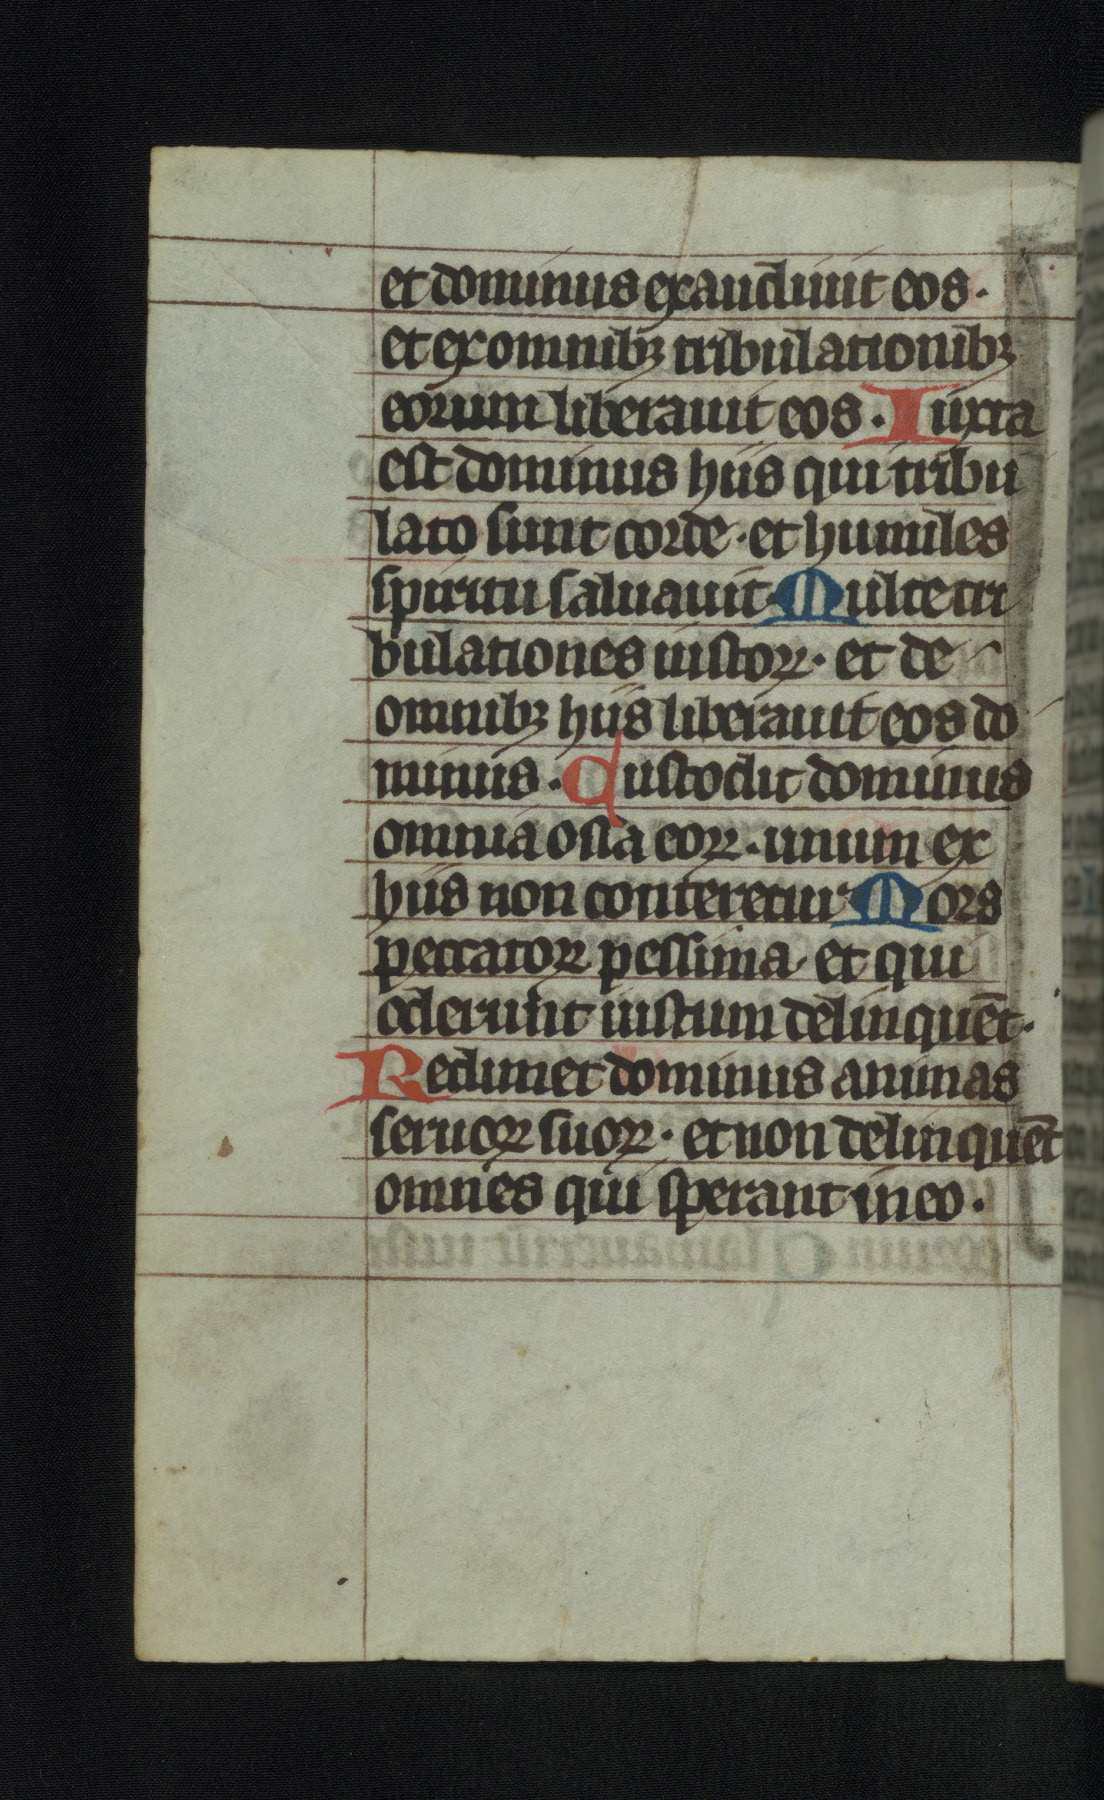 et dominus exaudiuit eos·
et ex omnibꝫ tribulationibꝫ
eorum liberauit eos· Iuxta
est dominus hiis qui tribu
lato sunt corde· et humiles
spiritu saluauit· Multe tri
bulationes iustoꝝ· et de
omnibꝫ hiis liberauit eos do
minus· Custodit dominus
omnia ossa eoꝝ· unum ex
hiis non conteretur· Mors
peccatoꝝ pessima et qui
oderunt iustum delinquēt·
Redimet dominus animas
seruoꝝ suoꝝ· et non delinquēt
omnes qui sperant in eo·